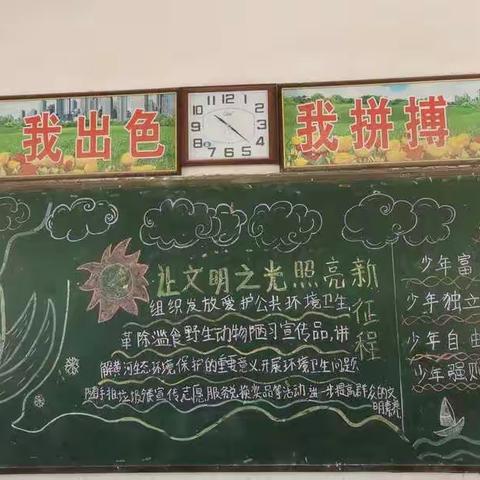 我出色
我拼搏
让文明之光照亮新征程
组织发放爱护公共环境卫生
革除滥食野生动物陋习宣传品,讲
解黄河生态环境保护的重要意义开展环境卫生问题
随手拍垃圾宣传志愿服务兑换奖品等活动进一步提高群众的文
明素
少年富
少年独立
少年自由
少年强则